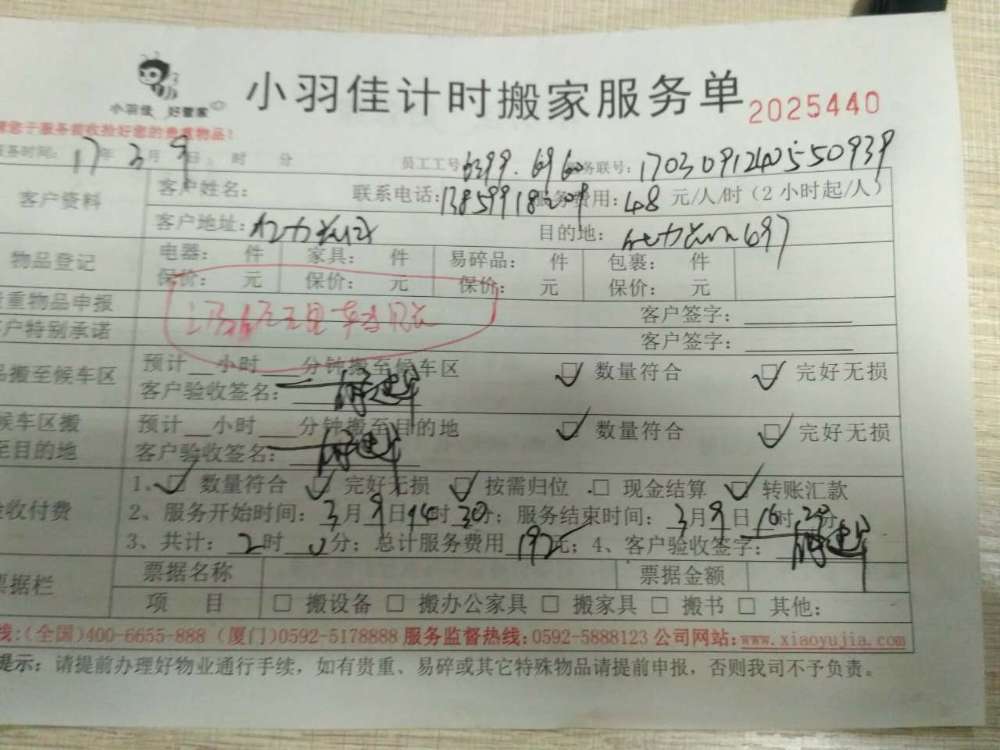 小羽佳 好管家
小羽佳计时搬家服务单 2025440
您于服务前收验好您的贵重物品!
务时间: 17年3月9日 时 分 员工工号 6399.6960 务联号: 17030912405550939
客户资料 客户姓名: 联系电话: 服务费用: 48 元/人/时(2小时起/人)
客户地址: 目的地: 697
物品登记 电器: 件 家具: 件 易碎品: 件 包裹: 件
保价: 元 保价: 元 保价: 元 保价: 元
贵重物品申报 客户签字:
客户特别承诺 客户签字:
品搬至候车区 预计 小时 分钟搬至候车区 数量符合 完好无损
客户验收签名:
候车区搬 预计 小时 分钟搬至目的地 数量符合 完好无损
至目的地 客户验收签名:
验收付费 1、 数量符合 完好无损 按需归位 现金结算 转账汇款
2、服务开始时间: 3月9日14时30分; 服务结束时间: 3月9日16时 分
3、共计: 2时 0分; 总计服务费用 192元; 4、客户验收签字:
票据栏 票据名称 票据金额
项 目 搬设备 搬办公家具 搬家具 搬书 其他:
线:(全国)400-6655-888 (厦门)0592-5178888 服务监督热线:0592-5888123 公司网站:www.xiaoyujia.com
提示: 请提前办理好物业通行手续, 如有贵重、易碎或其它特殊物品请提前申报, 否则我司不予负责。